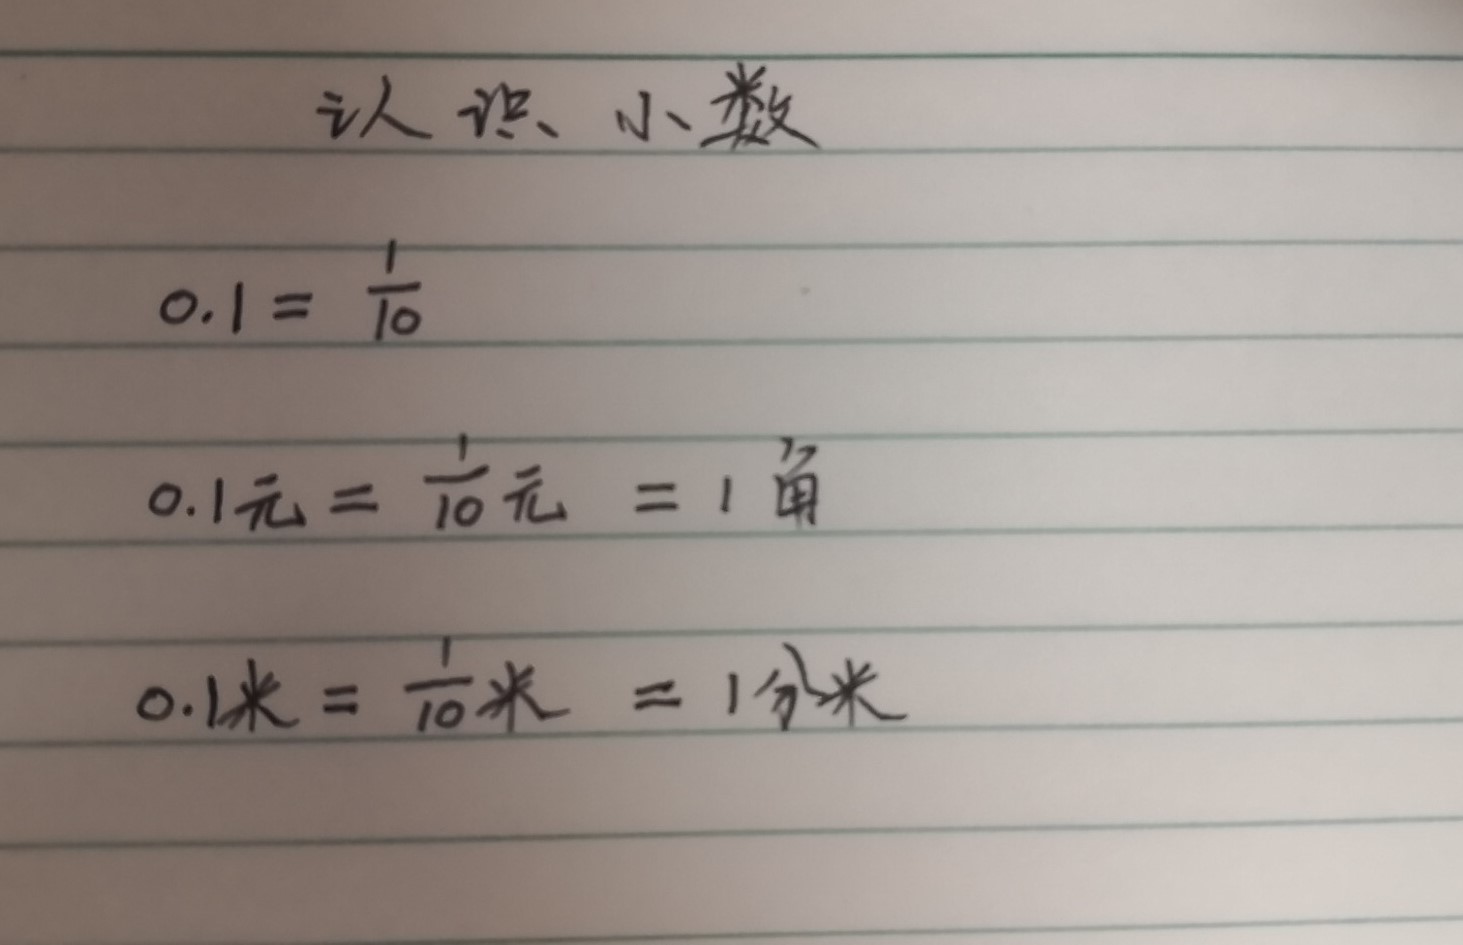 认识小数
0.1 = 1/10
0.1元 = 1/10元 = 1角
0.1米 = 1/10米 = 1分米